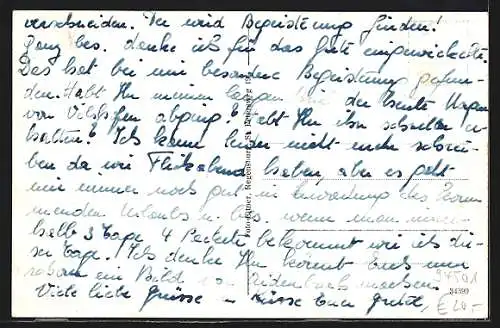 verschneiden. Der wird Begeisterung finden!
Ganz bes. danke ich für das gute eingewickelte.
Das hat bei mir besondere Begeisterung gefun-
den. Habt Ihr meinen der heute Morgen
von Vilshofen abging? Habt Ihr ihn schneller er-
halten? Ich kann leider nicht mehr schrei-
ben da wir Flickabend haben, aber es geht
mir immer noch gut in Erwartung des kom-
menden Urlaubs u. bes. wenn man inner-
halb 3 Tage 4 Pakete bekommt wie ich die-
se Tage. Ich denke Ihr könnt Euch nun
ein Bild von machen
Viele liebe Grüsse u. Küsse Eure
Foto-Ettner, Regensburg,
34501
34399
€ 20,-